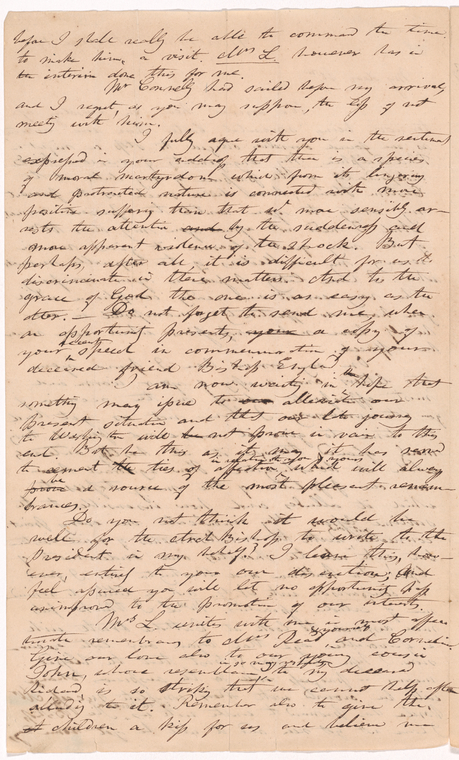 before I shall really be able to command the time
to make him, a visit. Mrs L. however has in
the interim done this for me.
Mr Connelly had sailed before my arrival
and I regret as you may suppose, the loss of not
meeting with him.
I fully agree with you in the sentiment
expressed in your address, that there is a species
of moral martyrdom which from its lingering
and protracted nature is connected with more
positive suffering than that wh. more sensibly ar-
rests the attention and by the suddenness and
more apparent violence of the shock. But
perhaps after all it is difficult for us to
discriminate in these matters. And to the
grace of God the one is as easy as the
other. — Do not forget to send me, when
an opportunity presents, your a copy of
your recent speech in commemoration of yours
deceased friend Bishop
I am now waiting in the hope that
something may arise to our alleviate our
present situation and that our late journey
to Washington will be not prove in vain to this
end. But be this as it may it has
to cement the ties of affection, which will always
prove be a source of the most pleasant remem-
brances.
Do you not think it would be
well for the elect Bishop to write to the
President in my behalf? I leave this, how-
ever, entirely to your own discretion; and
feel assured you will let no opportunity pass
unimproved to the promotion of our interests.
Mrs L unites with me in most affec-
tionate remembrances to Mrs Read and Cornelia.
Give our love also to our young cousin
John, whose resemblance in so many respects to my deceased
husband is so striking that we cannot help often
alluding to it. Remember also to give the
children a kiss for us and believe me